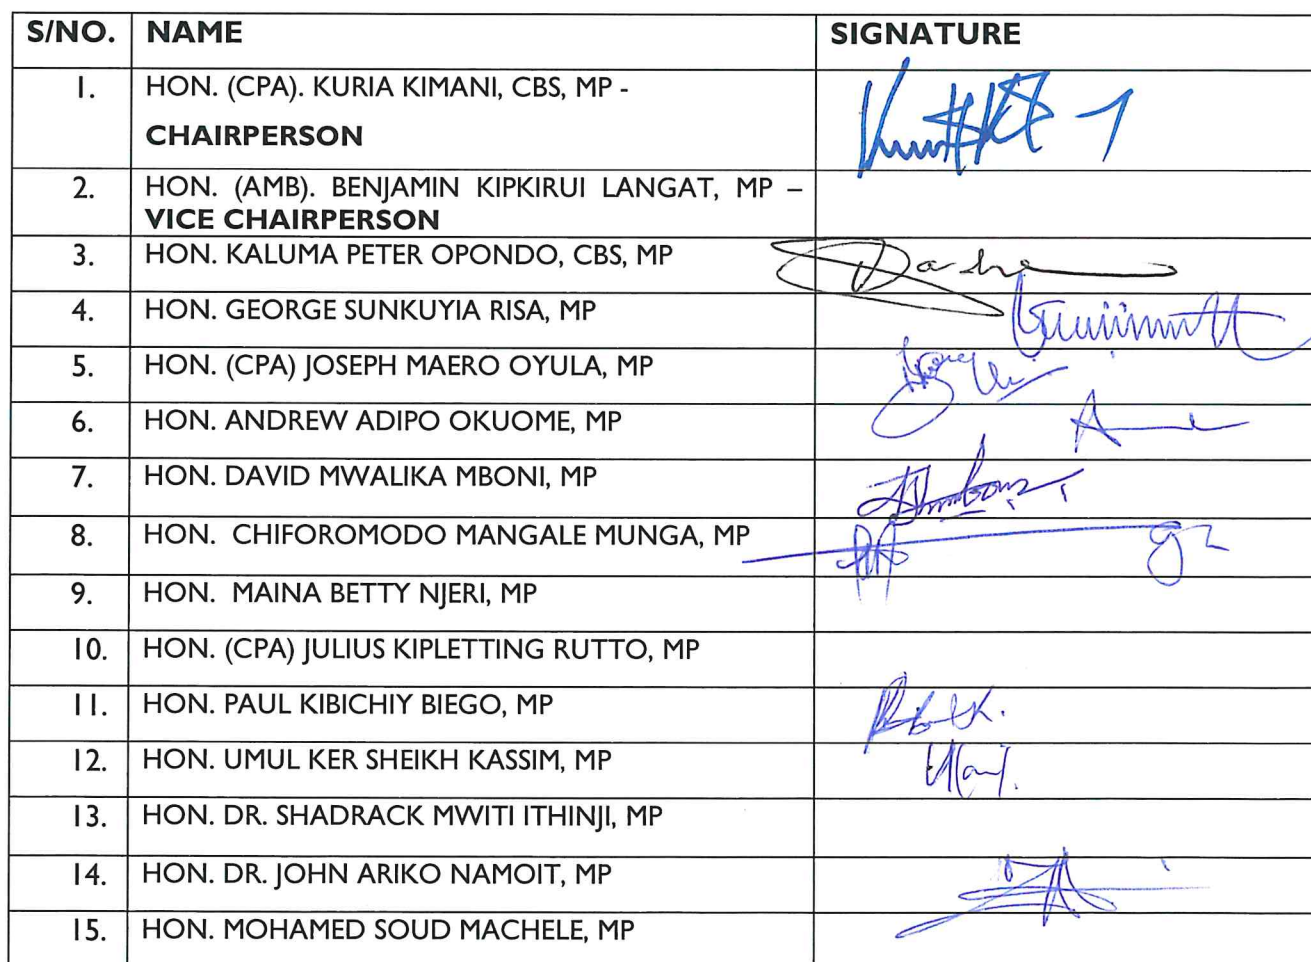 S/NO. NAME SIGNATURE
1. HON. (CPA). KURIA KIMANI, CBS, MP -
CHAIRPERSON
2. HON. (AMB). BENJAMIN KIPKIRUI LANGAT, MP –
VICE CHAIRPERSON
3. HON. KALUMA PETER OPONDO, CBS, MP
4. HON. GEORGE SUNKUYIA RISA, MP
5. HON. (CPA) JOSEPH MAERO OYULA, MP
6. HON. ANDREW ADIPO OKUOME, MP
7. HON. DAVID MWALIKA MBONI, MP
8. HON. CHIFOROMODO MANGALE MUNGA, MP
9. HON. MAINA BETTY NJERI, MP
10. HON. (CPA) JULIUS KIPLETTING RUTTO, MP
11. HON. PAUL KIBICHIY BIEGO, MP
12. HON. UMUL KER SHEIKH KASSIM, MP
13. HON. DR. SHADRACK MWITI ITHINJI, MP
14. HON. DR. JOHN ARIKO NAMOIT, MP
15. HON. MOHAMED SOUD MACHELE, MP